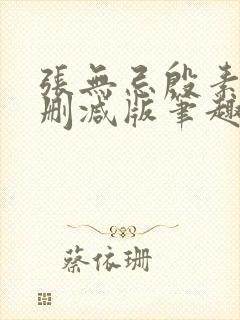 張無忌殷素
刪減版筆趣
蔡依珊